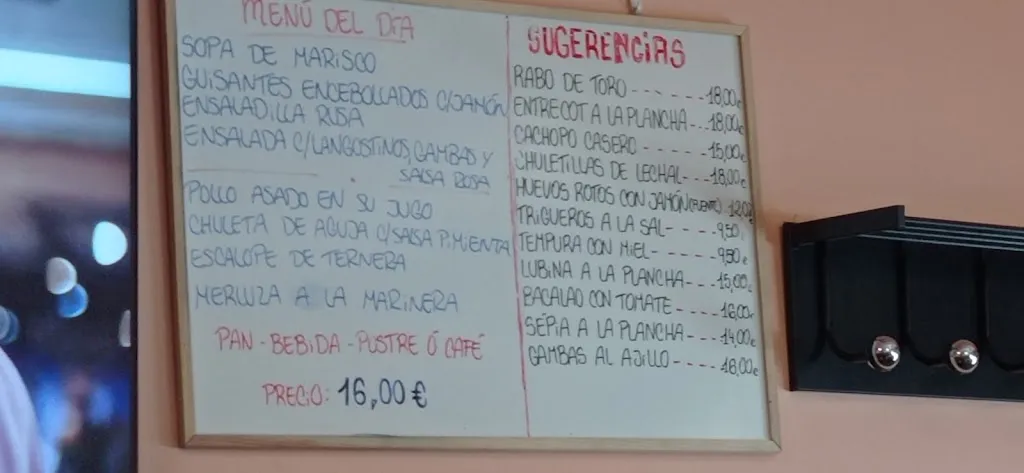 MENÚ DEL DÍA
SOPA DE MARISCO
GUISANTES ENCEBOLLADOS C/JAMÓN
ENSALADILLA RUSA
ENSALADA C/LANGOSTINOS, GAMBAS Y
SALSA ROSA
POLLO ASADO EN SU JUGO
CHULETA DE AGUJA C/SALSA PIMIENTA
ESCALOPE DE TERNERA
MERLUZA A LA MARINERA
PAN - BEBIDA - POSTRE Ó CAFÉ
PRECIO: 16,00 €
SUGERENCIAS
RABO DE TORO - - - - - - 18,00€
ENTRECOT A LA PLANCHA - - - 18,00€
CACHOPO CASERO - - - - - 15,00€
CHULETILLAS DE LECHAL - - - 18,00€
HUEVOS ROTOS CON JAMÓN 12,00
TRIGUEROS A LA SAL - - - - 9,50
TEMPURA CON MIEL - - - - 9,50 €
LUBINA A LA PLANCHA - - - - 15,00€
BACALAO CON TOMATE - - - - 16,00€
SEPIA A LA PLANCHA - - - - 14,00€
GAMBAS AL AJILLO - - - - - 16,00€